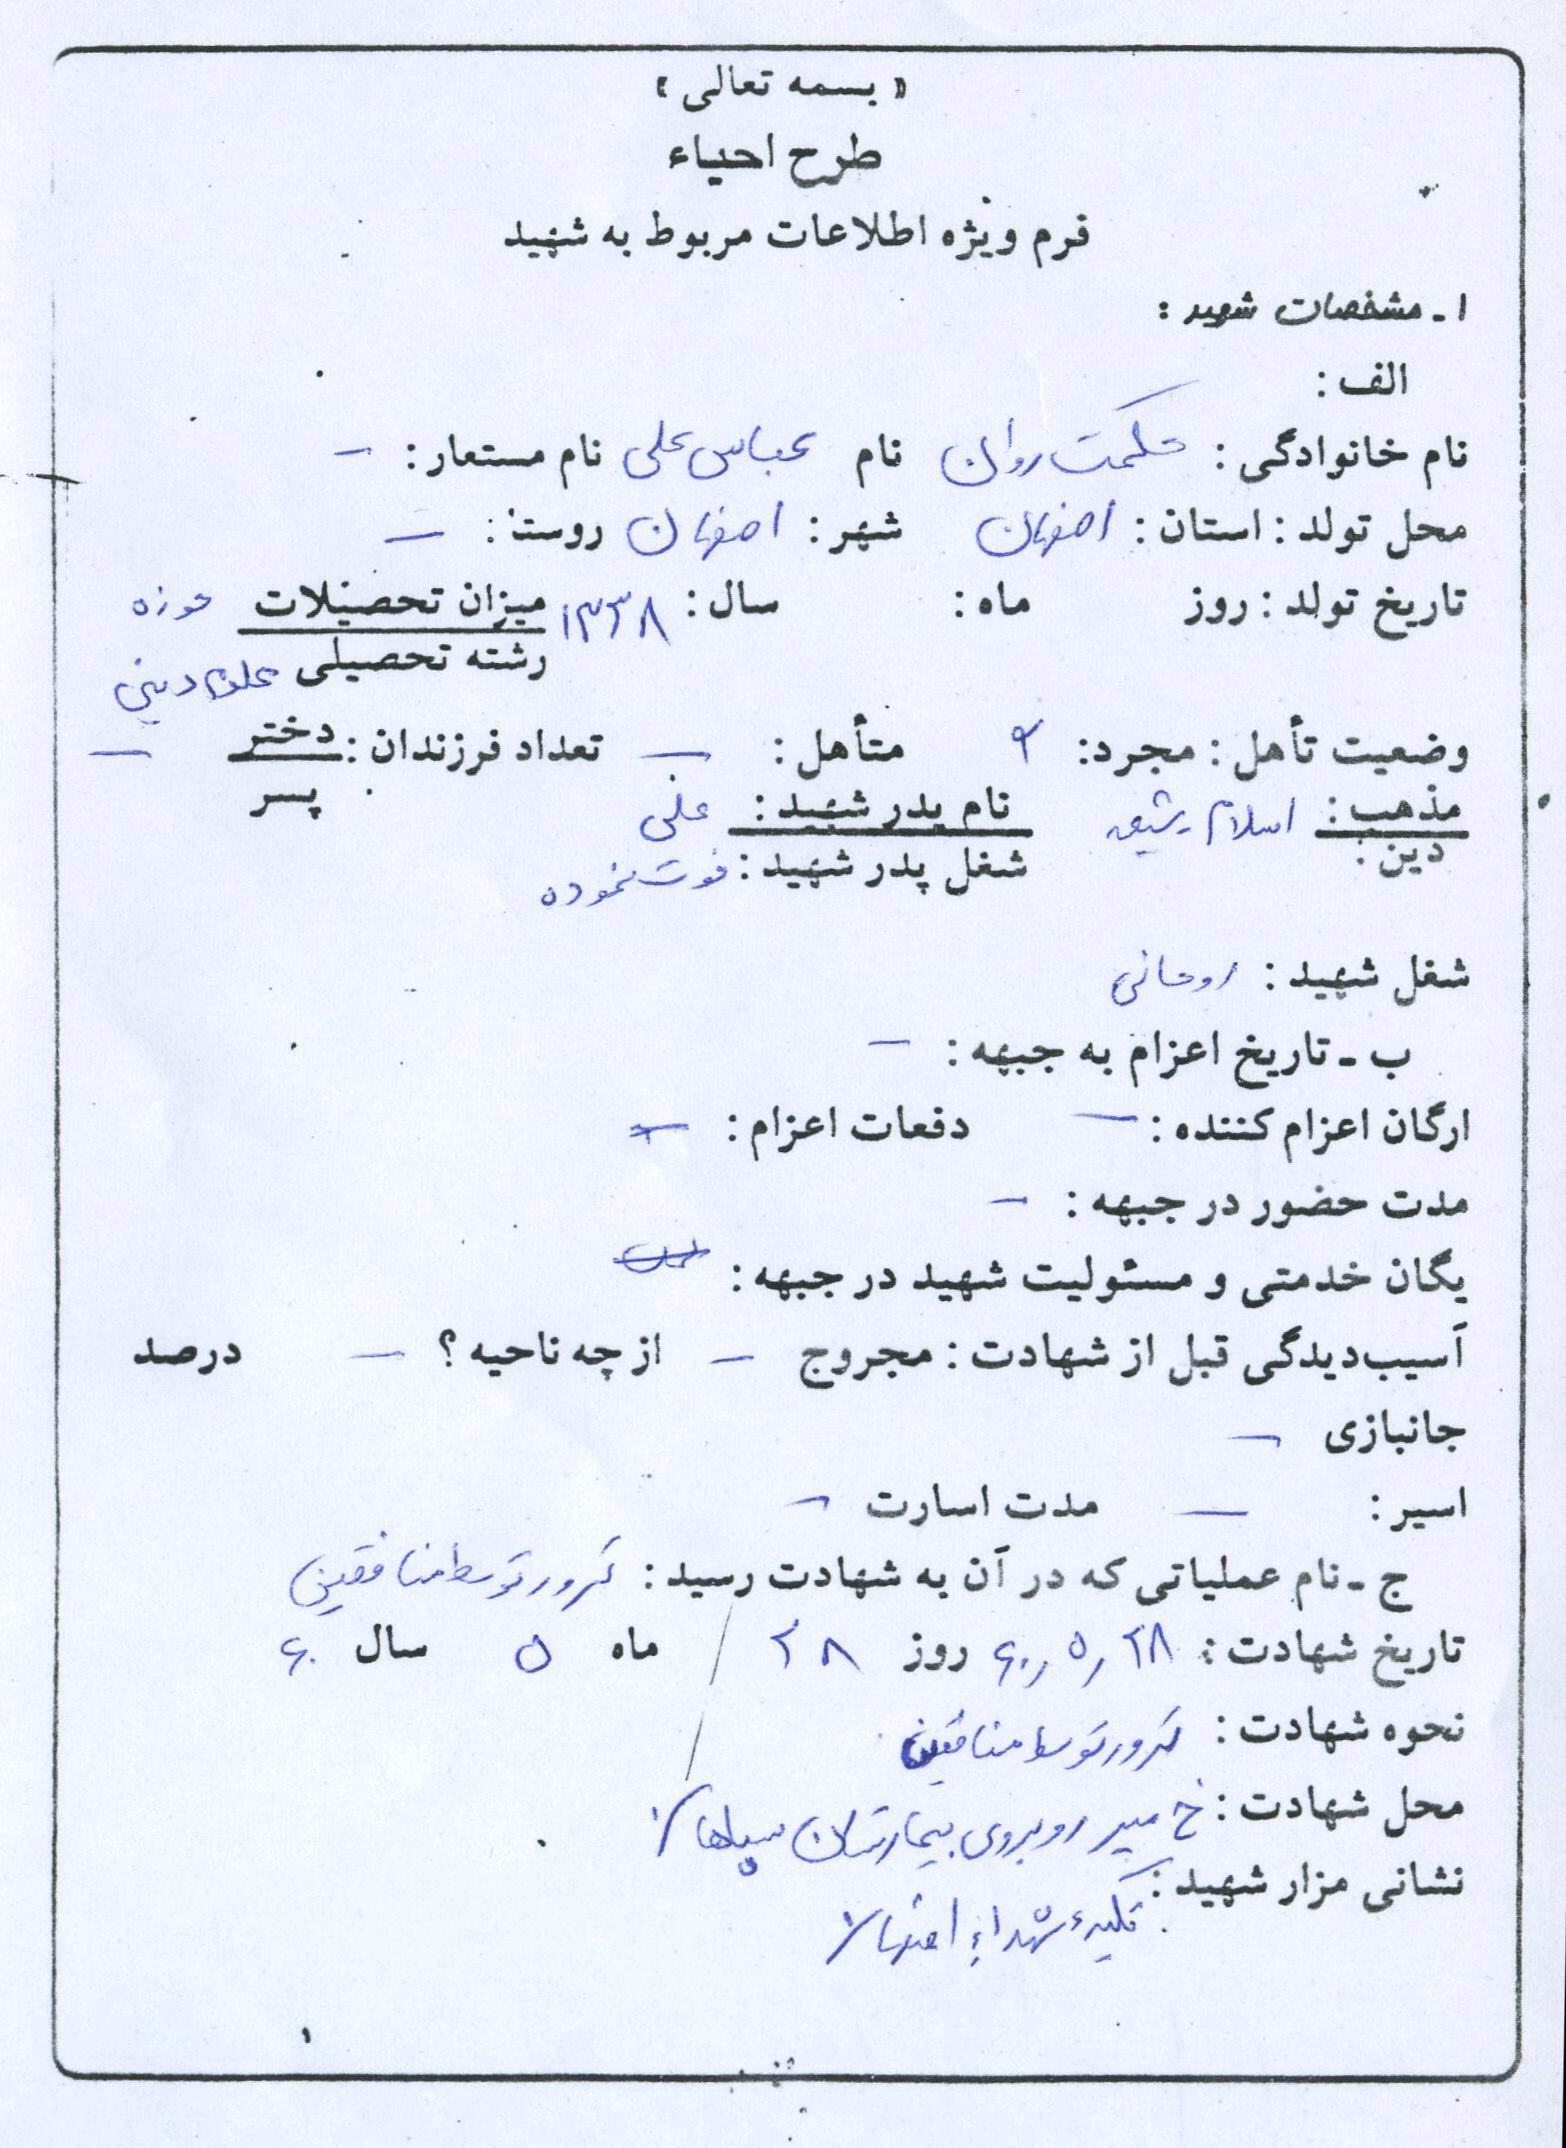 « بسمه تعالی »
طرح احیاء
فرم ویژه اطلاعات مربوط به شهید
۱ـ مشخصات شهید :
الف :
نام خانوادگی : حکمت روان نام عباس علی نام مستعار : –
محل تولد : استان : اصفهان شهر : اصفهان روستا : –
تاریخ تولد : روز ماه : سال : ۱۳۳۸ میزان تحصیلات حوزه
رشته تحصیلی علوم دینی
وضعیت تأهل : مجرد : متأهل : – تعداد فرزندان : دختر –
پسر
مذهب : اسلام شیعه نام پدر شهید : علی
دین : شغل پدر شهید : فوت نموده
شغل شهید : روحانی
ب ـ تاریخ اعزام به جبهه : –
ارگان اعزام کننده : – دفعات اعزام : –
مدت حضور در جبهه : –
یگان خدمتی و مسئولیت شهید در جبهه :
آسیب‌دیدگی قبل از شهادت : مجروح – از چه ناحیه ؟ – درصد
جانبازی –
اسیر : – مدت اسارت –
ج ـ نام عملیاتی که در آن به شهادت رسید : ترور توسط منافقین
تاریخ شهادت : ۲۸ ر ۵ ر ۶۰ روز ۲۸ / ماه ۵ سال ۶۰
نحوه شهادت : ترور توسط منافقین
محل شهادت : خ میر روبروی بیمارستان سپاهان
نشانی مزار شهید :
تکیهٔ شهداء اصفهان
۱